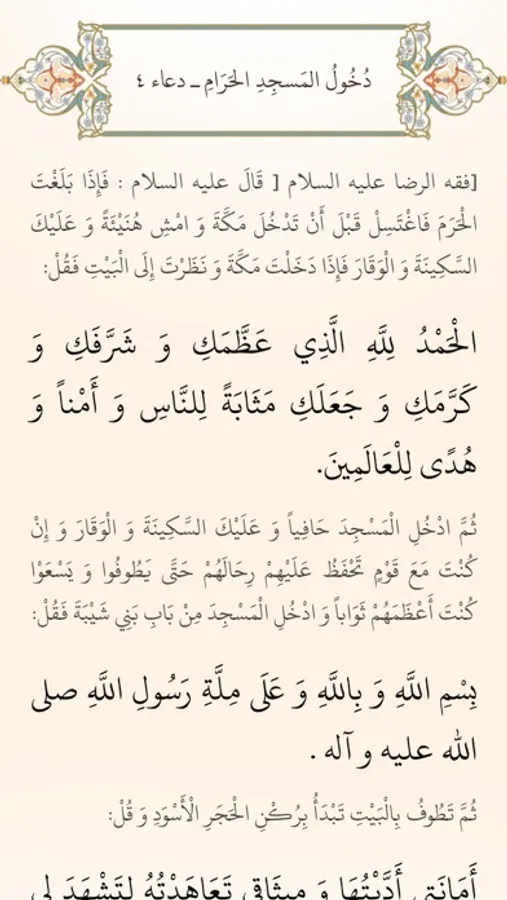 دُخُولُ المَسجِدِ الحَرَامِ ـ دعاء ٤
[فقه الرضا عليه السلام [ قَالَ عليه السلام : فَإِذَا بَلَغْتَ
الْحَرَمَ فَاغْتَسِلْ قَبْلَ أَنْ تَدْخُلَ مَكَّةَ وَ امْشِ هُنَيْئَةً وَ عَلَيْكَ
السَّكِينَةَ وَ الْوَقَارَ فَإِذَا دَخَلْتَ مَكَّةَ وَ نَظَرْتَ إِلَى الْبَيْتِ فَقُلْ:
الْحَمْدُ لِلَّهِ الَّذِي عَظَّمَكِ وَ شَرَّفَكِ وَ
كَرَّمَكِ وَ جَعَلَكِ مَثَابَةً لِلنَّاسِ وَ أَمْناً وَ
هُدًى لِلْعَالَمِينَ.
ثُمَّ ادْخُلِ الْمَسْجِدَ حَافِياً وَ عَلَيْكَ السَّكِينَةَ وَ الْوَقَارَ وَ إِنْ
كُنْتَ مَعَ قَوْمٍ تَحْفَظُ عَلَيْهِمْ رِحَالَهُمْ حَتَّى يَطُوفُوا وَ يَسْعَوْا
كُنْتَ أَعْظَمَهُمْ ثَوَاباً وَ ادْخُلِ الْمَسْجِدَ مِنْ بَابِ بَنِي شَيْبَةَ فَقُلْ:
بِسْمِ اللَّهِ وَ بِاللَّهِ وَ عَلَى مِلَّةِ رَسُولِ اللَّهِ صلى
الله عليه و آله .
ثُمَّ تَطُوفُ بِالْبَيْتِ تَبْدَأُ بِرُكْنِ الْحَجَرِ الْأَسْوَدِ وَ قُلْ:
أَمَانَتِي أَدَّيْتُهَا وَ مِيثَاقِي تَعَاهَدْتُهُ لِتَشْهَدَ لِي